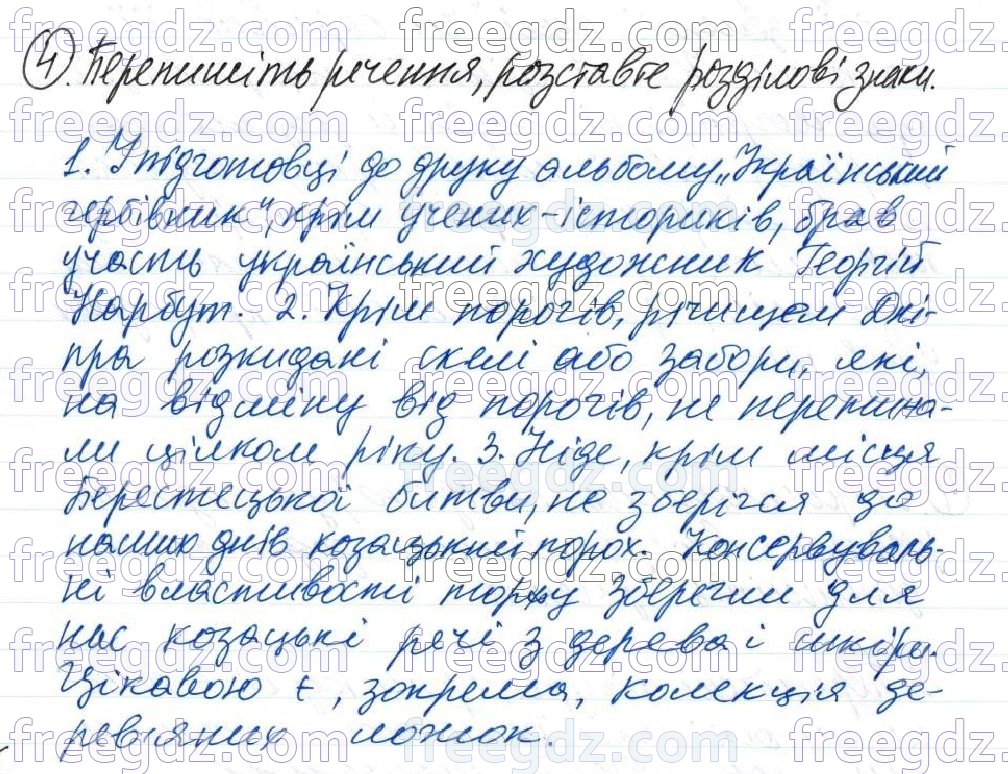 4. Перепишіть речення, розставте розділові знаки.
1. У підготовці до друку альбому „Український
гербівник“, крім учених-істориків, брав
участь український художник Георгій
Нарбут. 2. Крім порогів, річищем Дні-
пра розкидані скелі або забори, які,
на відміну від порогів, не перепиня-
ли цілком ріку. 3. Ніде, крім місця
Берестецької битви, не зберігся до
наших днів козацький порох. Консервуваль-
ні властивості торфу зберегли для
нас козацькі речі з дерева і шкіри.
Цікавою є, зокрема, колекція де-
рев'яних ложок.
freegdz.com